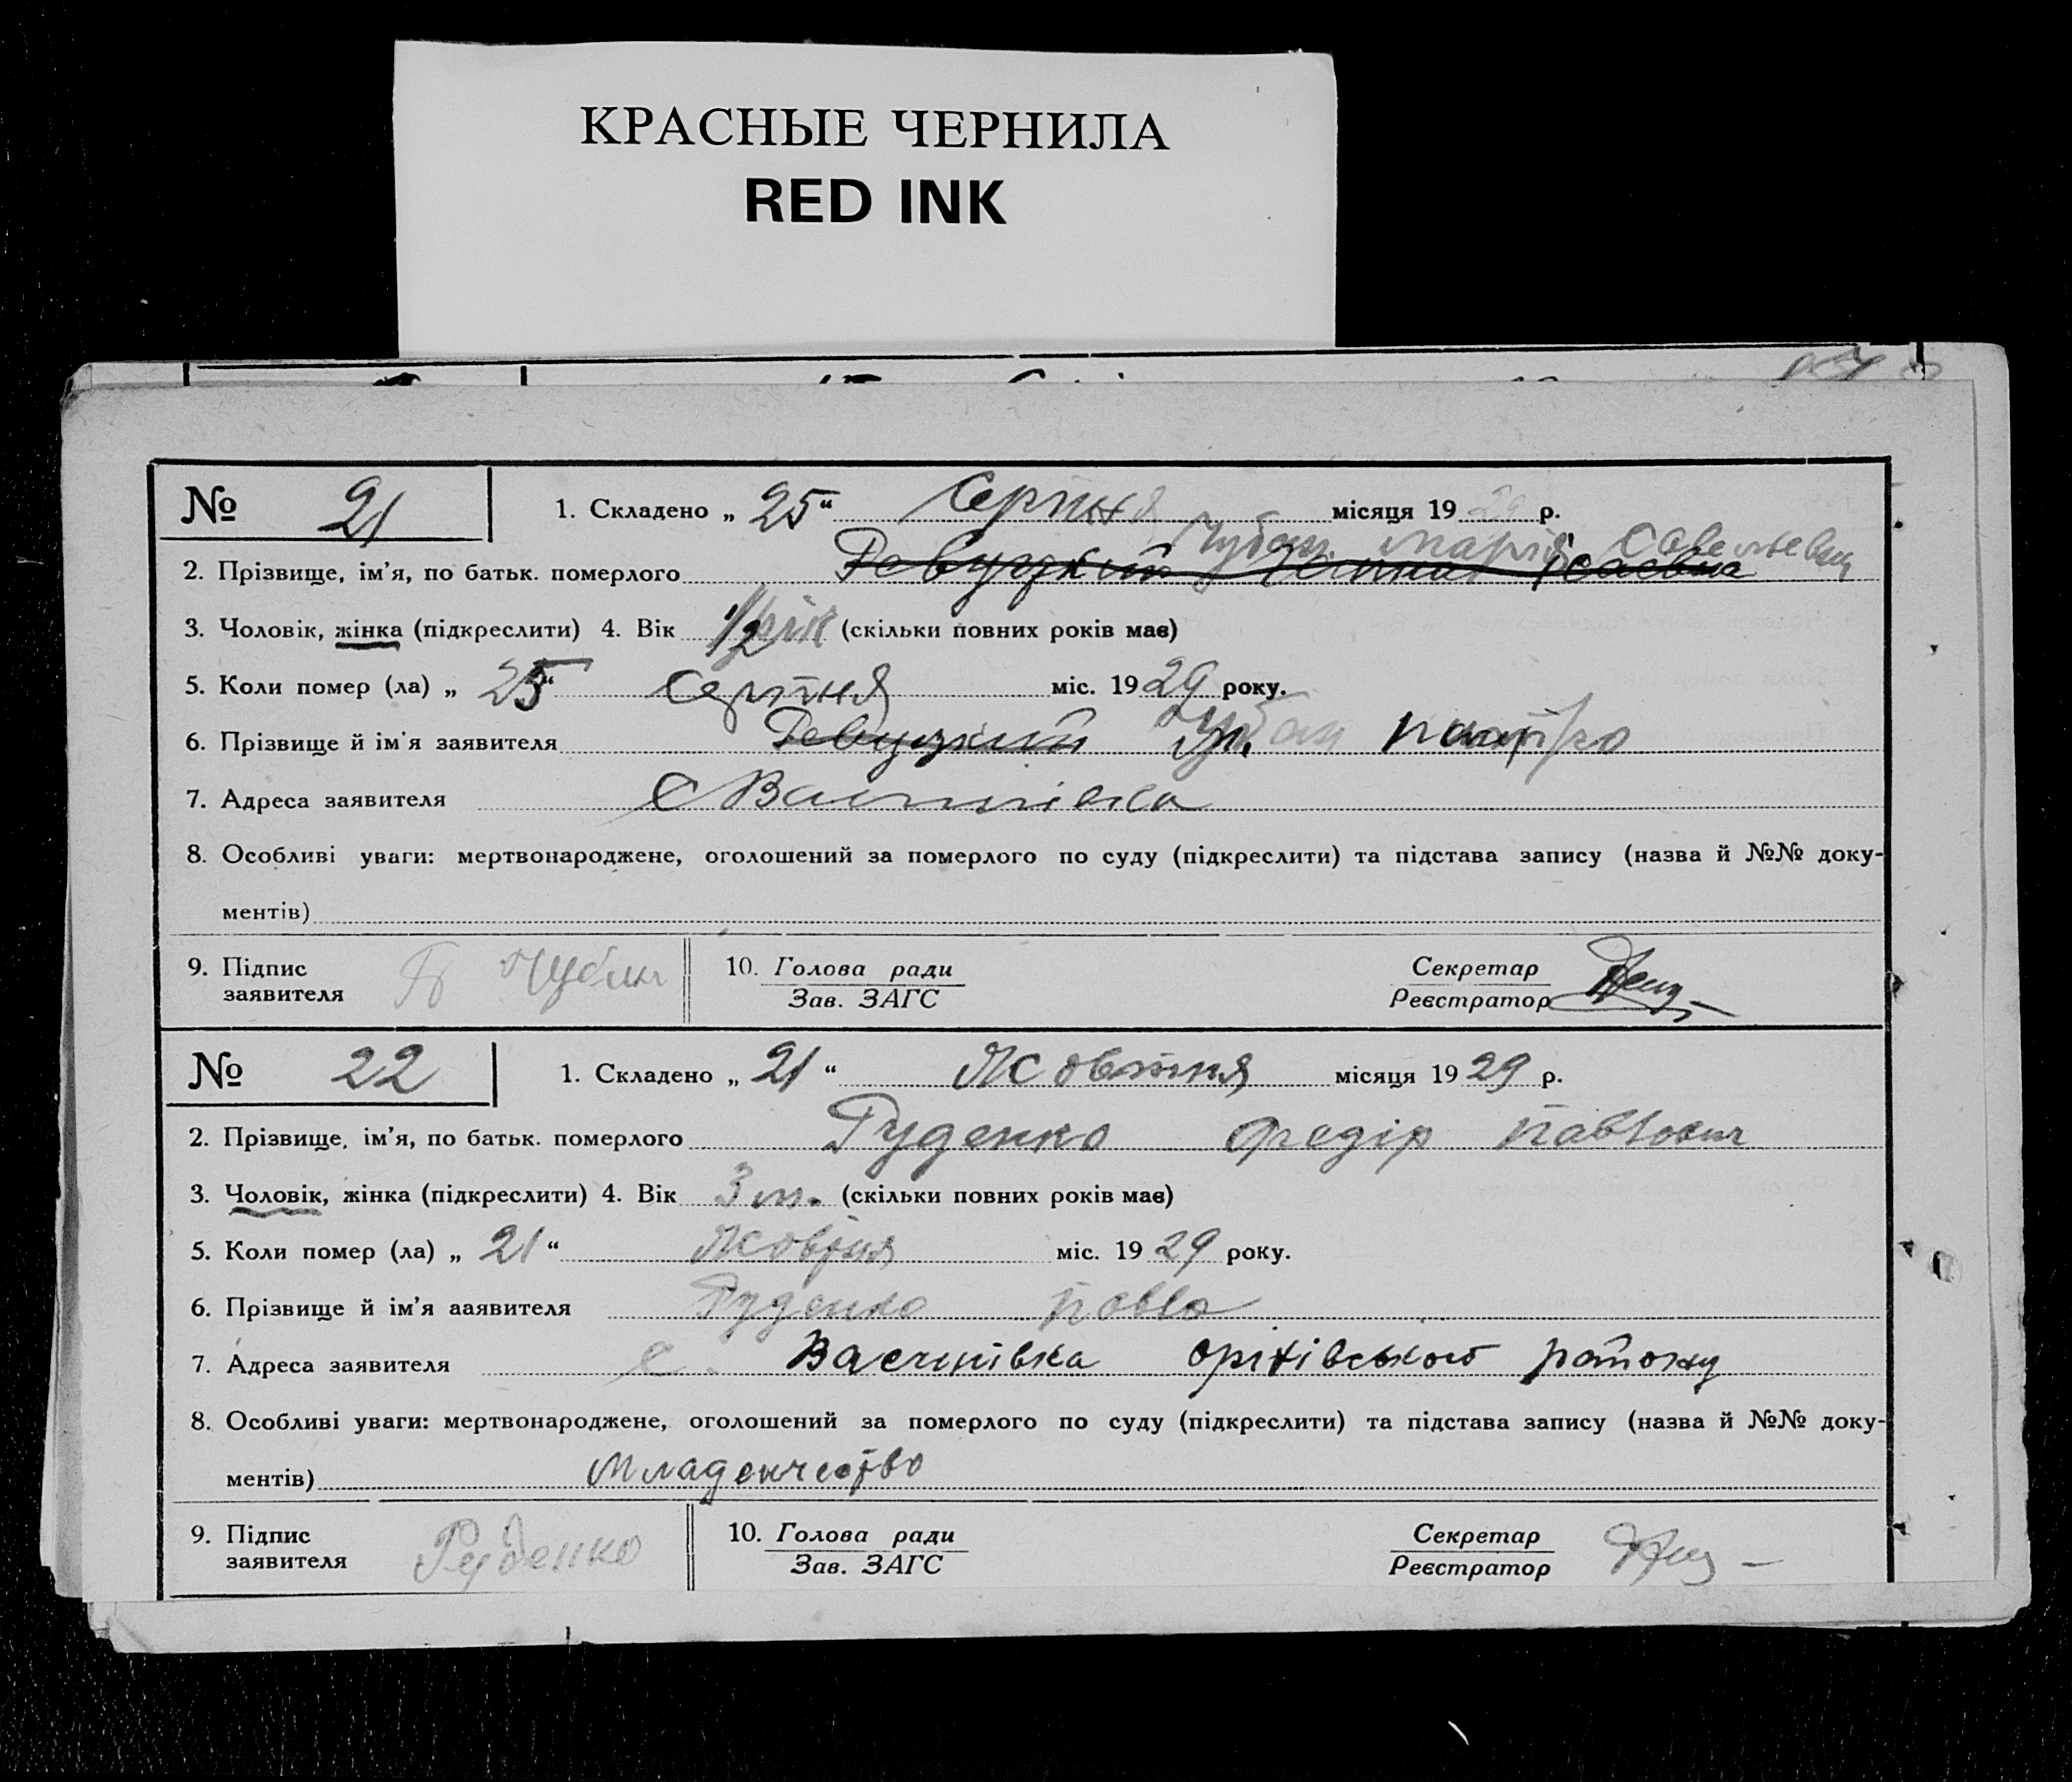 КРАСНЫЕ ЧЕРНИЛА
RED INK
№ 21 1. Складено „ 25 “ Серпня місяця 19 29 р.
Чубан Марія Савельевна
2. Прізвище, ім'я, по батьк. померлого Ревуцкий
3. Чоловік, жінка (підкреслити) 4. Вік 1/2 рік (скільки повних років має)
5. Коли помер (ла) „ 25 “ серпня міс. 19 29 року.
6. Прізвище й ім'я заявителя Ревуцкий Чубан
7. Адреса заявителя с Васинівка
8. Особливі уваги: мертвонароджене, оголошений за померлого по суду (підкреслити) та підстава запису (назва й №№ доку-
ментів)
9. Підпис заявителя 10. Голова ради Секретар
Зав. ЗАГС Реєстратор
№ 22 1. Складено „ 21 “ Жовтня місяця 19 29 р.
2. Прізвище, ім'я, по батьк. померлого Руденко Федір Павлович
3. Чоловік, жінка (підкреслити) 4. Вік 3 м. (скільки повних років має)
5. Коли помер (ла) „ 21 “ Жовтня міс. 19 29 року.
6. Прізвище й ім'я ааявителя Руденко Павло
7. Адреса заявителя с. Васинівка Оріхівського району
8. Особливі уваги: мертвонароджене, оголошений за померлого по суду (підкреслити) та підстава запису (назва й №№ доку-
ментів) Младенчество
9. Підпис заявителя Руденко 10. Голова ради Секретар
Зав. ЗАГС Реєстратор